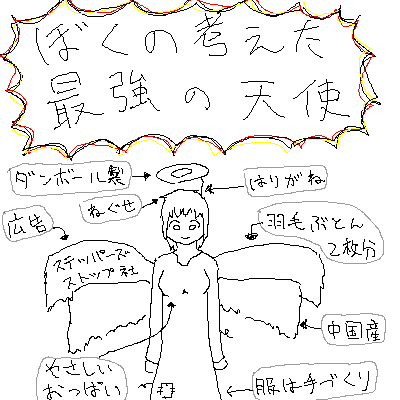 ぼくの考えた
最強の天使
ダンボール製
はりがね
ねぐせ
広告
羽毛ぶとん
2枚分
ステッパーズ
ストップ社
中国産
やさしい
おっぱい
服は手づくり